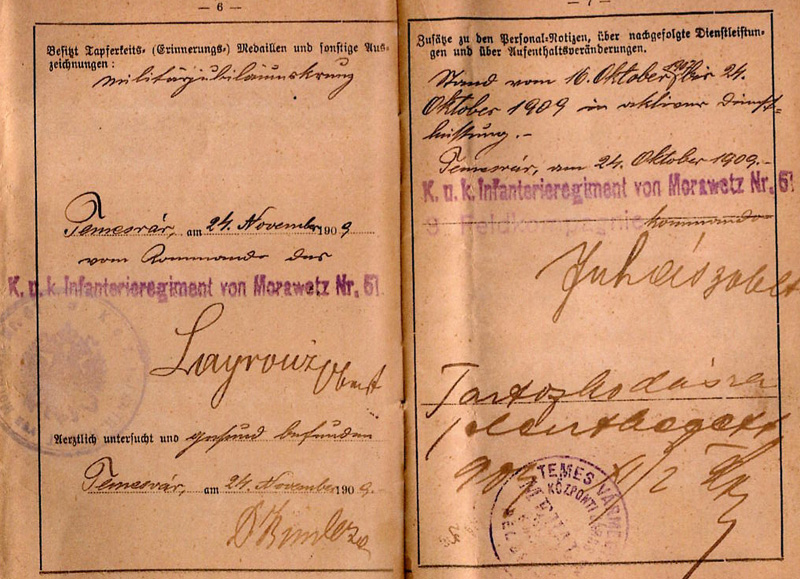 — 6 —
Besitzt Tapferkeits- (Erinnerungs-) Medaillen und sonstige Aus-
zeichnungen:
Militärjubiläumskreuz
Temesvár, am 24. November 1909
vom Kommando des
K. u. k. Infanterieregiment von Morawetz Nr. 61
Oberst
Aerztlich untersucht und gesund befunden
Temesvár, am 24. November 1909.
Zusätze zu den Personal-Notizen, über nachgefolgte Dienstleistun-
gen und über Aufenthaltsveränderungen.
Stand vom 16. Oktober bis 24.
Oktober 1909 in aktiver Dienst-
leistung.-
Temesvár, am 24. Oktober 1909.-
K. u. k. Infanterieregiment von Morawetz Nr. 61
Feldkompagnie kommando
Juhász
Tartozkodásra
TEMES VÁRME
KÖZPONTI